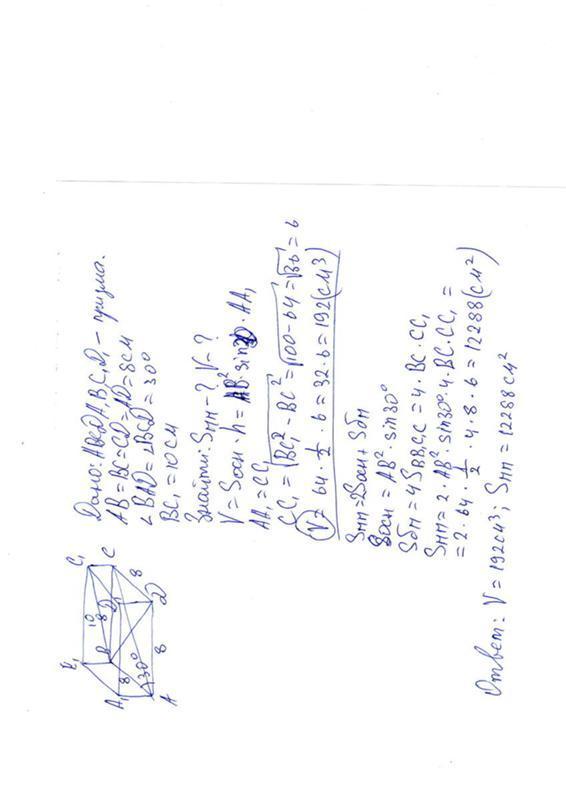 B₁ C₁
10
B 8 D₁ C
A₁ 8 30° 8
A 8 D
Дано: ABCDA₁B₁C₁D₁ – призма.
AB=BC=CD=AD=8см
∠BAD=∠BCD=30°
BC₁=10см
Знайти: Sпп-? V-?
V=Sосн·h=AB²·sin30·AA₁
AA₁=CC₁
CC₁=√BC₁²-BC²=√100-64=√36=6
V=64·1/2·6=32·6=192(см³)
Sпп=2Sосн+Sбп
Sосн=AB²·sin30°
Sбп=4SBB₁C₁C=4·BC·CC₁
Sпп=2·AB²·sin30°·4·BC·CC₁=
=2·64·1/2·4·8·6=12288(см²)
Ответ: V=192см³; Sпп=12288см²